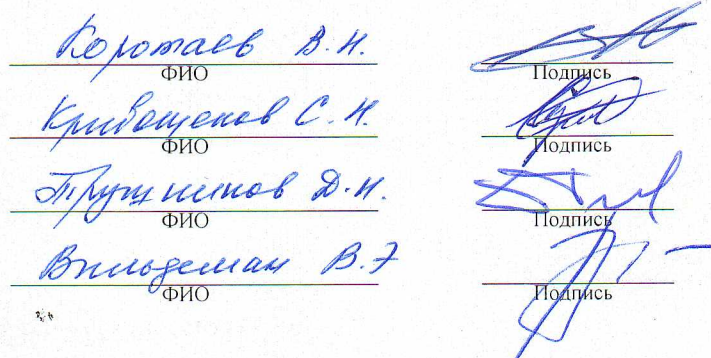 Коротаев В.Н.
ФИО Подпись
Кривощеков С.Н.
ФИО Подпись
Трушников Д.Н.
ФИО Подпись
Вильдеман В.Э
ФИО Подпись